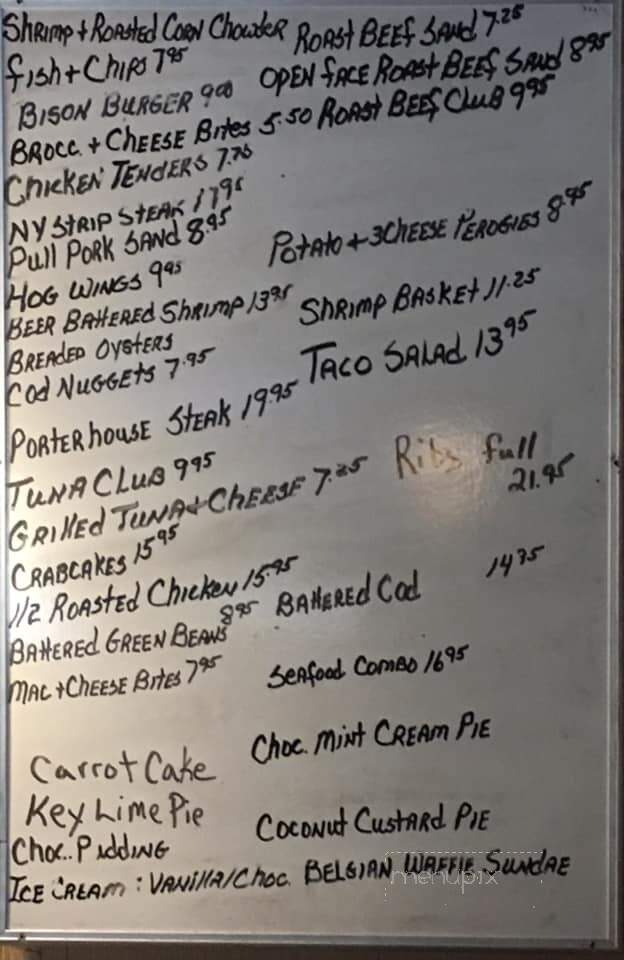 Shrimp + Roasted Corn Chowder
Roast Beef Sand 7.25
Fish + Chips 7.95
Open Face Roast Beef Sand 8.95
Bison Burger 9.00
Roast Beef Club 9.95
Brocc. + Cheese Bites 5.50
Chicken Tenders
NY Strip Steak 17.95
Pull Pork Sand 8.95
Potato + 3 Cheese Perogies 8.95
Hog Wings 9.95
Beer Battered Shrimp 13.95
Shrimp Basket 11.25
Breaded Oysters
Cod Nuggets 7.95
Taco Salad 13.95
Porterhouse Steak 19.95
Tuna Club 9.95
Ribs full
21.95
Grilled Tuna + Cheese 7.25
Crabcakes 15.95
1/2 Roasted Chicken 15.95
Battered Cod
Battered Green Beans 8.95
Mac + Cheese Bites 7.95
Seafood Combo 16.95
Choc. Mint Cream Pie
Carrot Cake
Key Lime Pie
Coconut Custard Pie
Choc.. Pudding
Ice Cream: Vanilla/Choc. Belgian Waffle Sundae
menupix